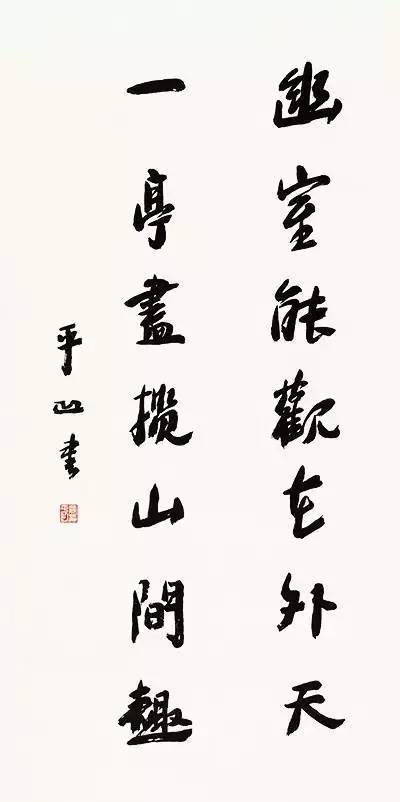 幽室能觀世外天
一亭盡攬山間趣
平凹書